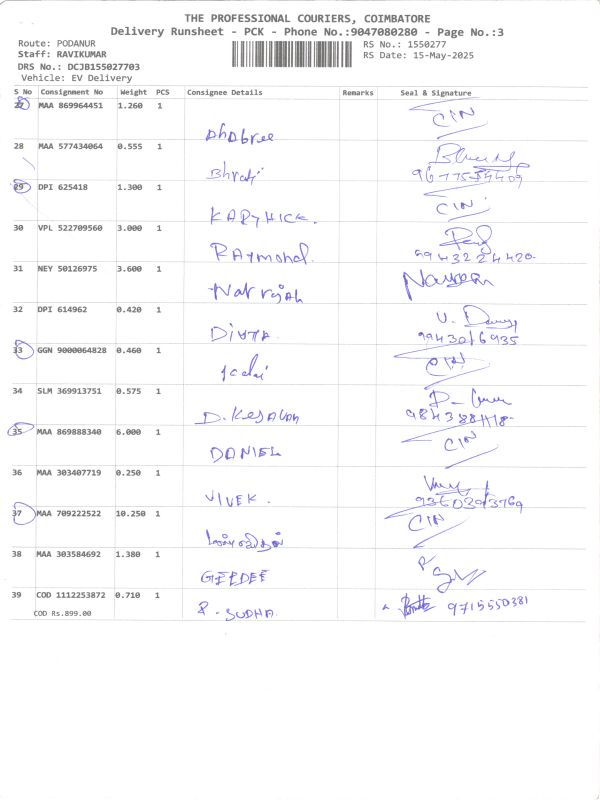 THE PROFESSIONAL COURIERS, COIMBATORE
Delivery Runsheet - PCK - Phone No.:9047080280 - Page No.:3
Route: PODANUR
RS No.: 1550277
Staff: RAVIKUMAR
RS Date: 15-May-2025
DRS No.: DCJB155027703
Vehicle: EV Delivery
S No Consignment No Weight PCS Consignee Details Remarks Seal & Signature
27 MAA 869964451 1.260 1 CIN
28 MAA 577434064 0.555 1
29 DPI 625418 1.300 1 CIN
KARTHICK.
30 VPL 522709560 3.000 1
RAymond. 9943224420
31 NEY 50126975 3.600 1
Natrajah
32 DPI 614962 0.420 1
DIVYA.
33 GGN 9000064828 0.460 1 CIN
34 SLM 369913751 0.575 1
D. Kesavan
35 MAA 869888340 6.000 1 CIN
DANIEL
36 MAA 303407719 0.250 1
VIVEK.
37 MAA 709222522 10.250 1 CIN
38 MAA 303584692 1.380 1
39 COD 1112253872 0.710 1 9715550381
SUDHA.
COD Rs.899.00